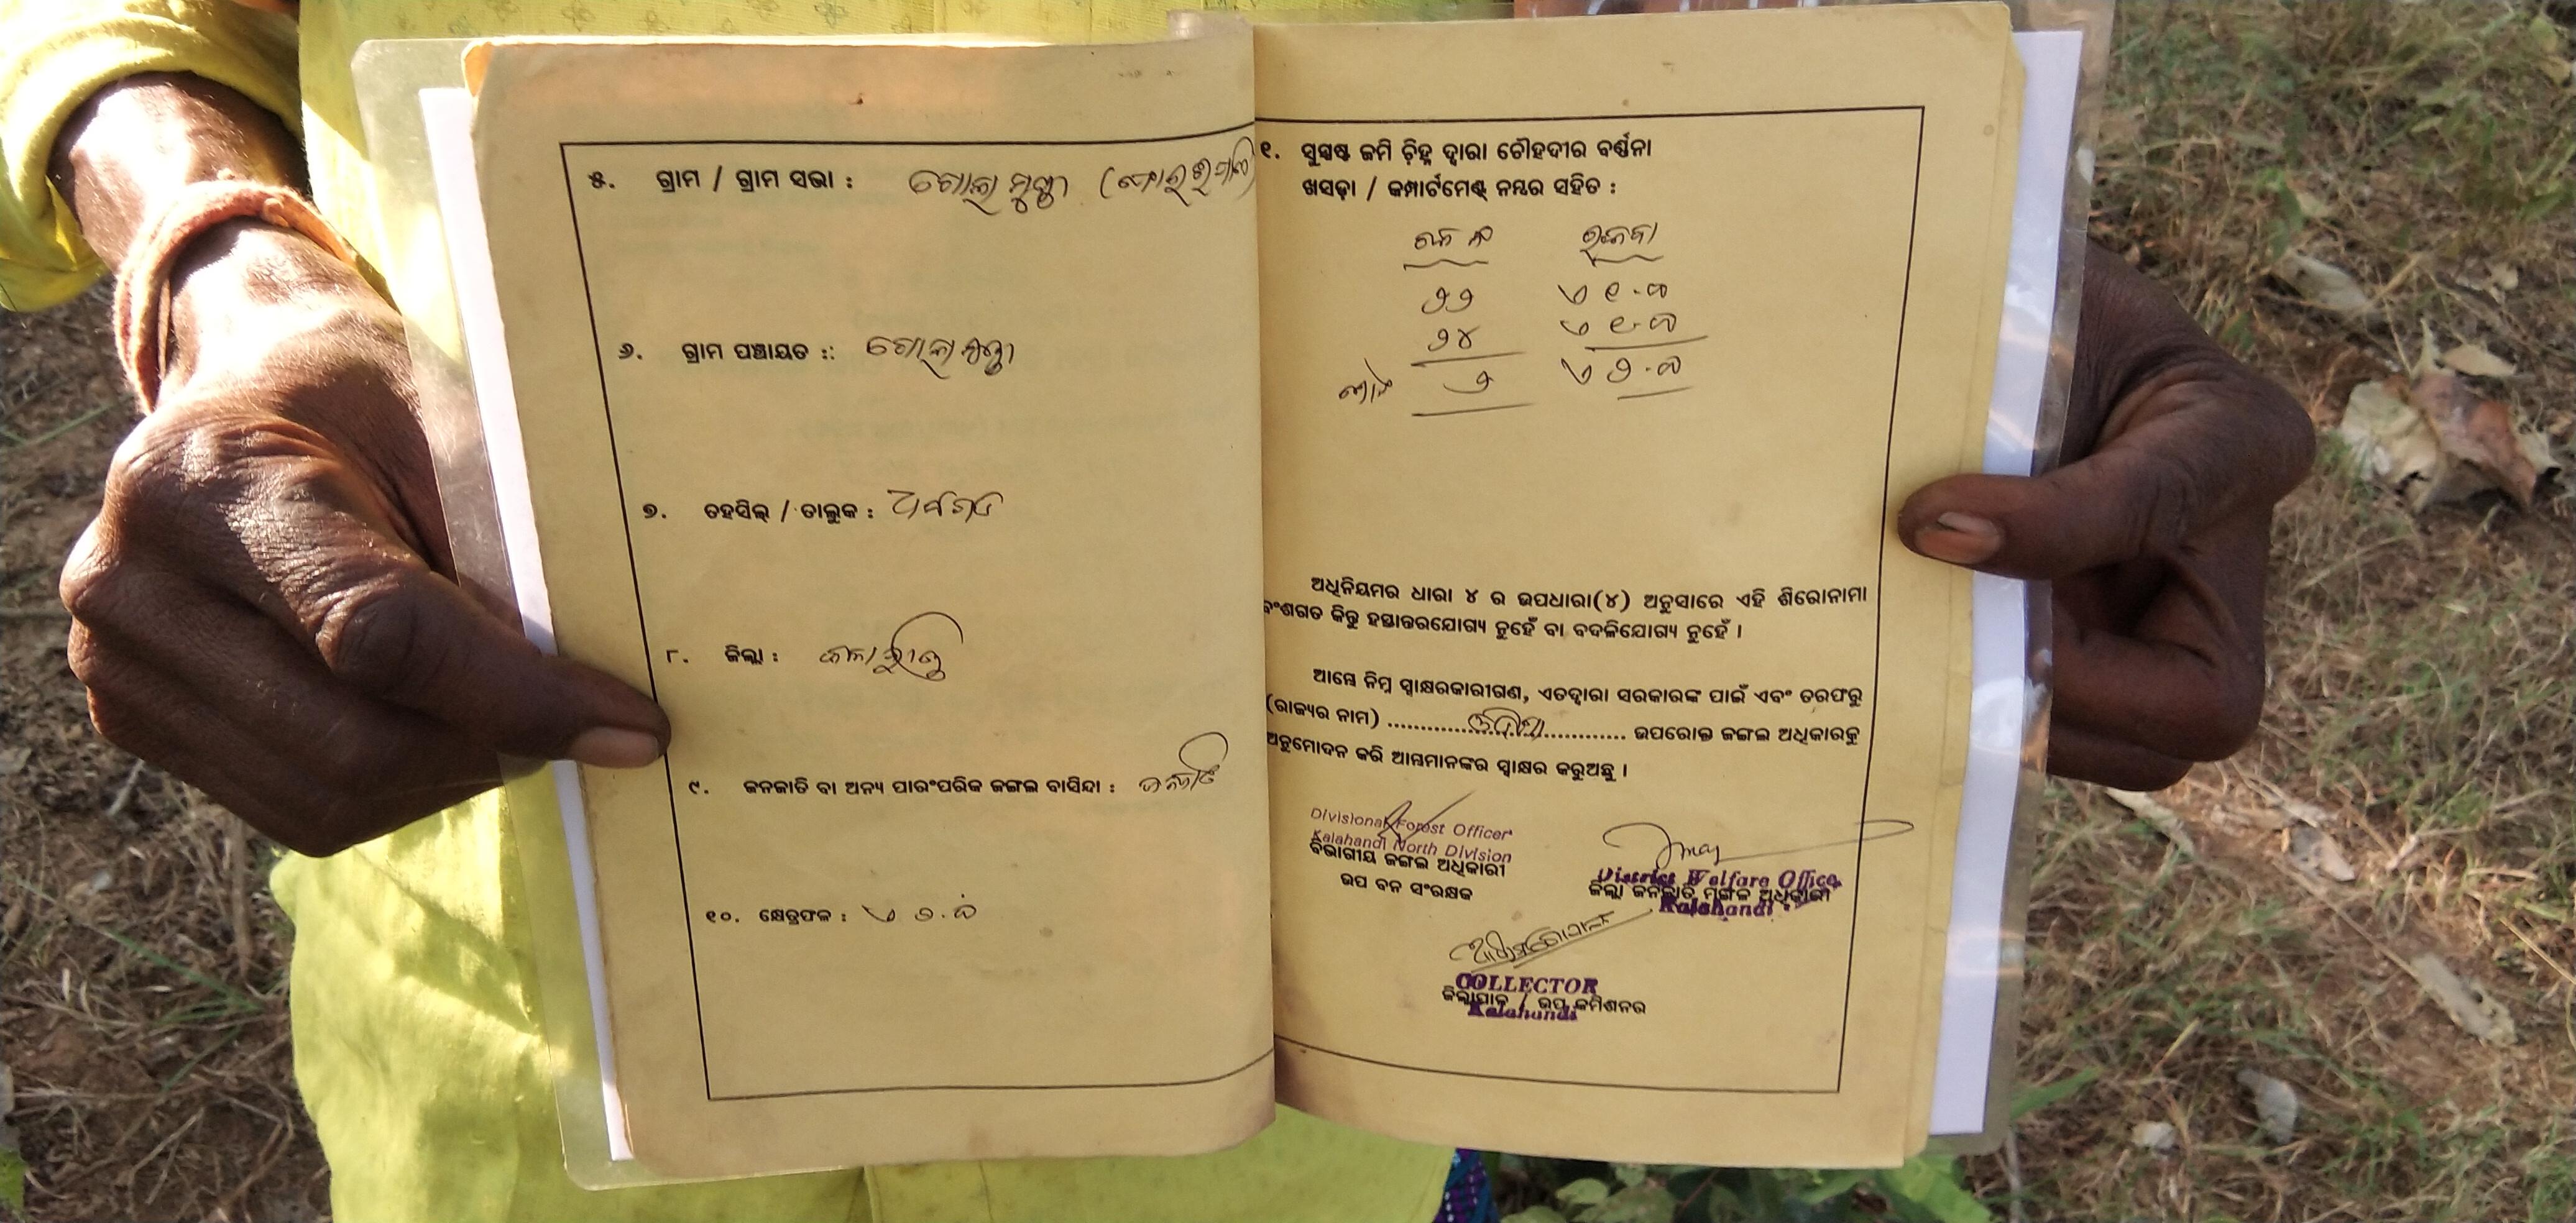 ୫. ଗ୍ରାମ / ଗ୍ରାମ ସଭା : ଗୋଲମୁଣ୍ଡା
୬. ଗ୍ରାମ ପଞ୍ଚାୟତ :: ଗୋଲମୁଣ୍ଡା
୭. ତହସିଲ୍ / ତାଲୁକ : ଧର୍ମଗଡ
୮. ଜିଲ୍ଲା : କଳାହାଣ୍ଡି
୯. ଜନଜାତି ବା ଅନ୍ୟ ପାରଂପରିକ ଜଙ୍ଗଲ ବାସିନ୍ଦା : ଜନଜାତି
୧୦. କ୍ଷେତ୍ରଫଳ :
୧. ସୁସ୍ପଷ୍ଟ ଜମି ଚିହ୍ନ ଦ୍ୱାରା ଚୌହଦୀର ବର୍ଣ୍ଣନା
ଖସଡ଼ା / କମ୍ପାର୍ଟମେଣ୍ଟ୍ ନମ୍ବର ସହିତ :
ରକବା
୨୨
୨୪
୨
ଅଧିନିୟମର ଧାରା ୪ ର ଉପଧାରା(୪) ଅନୁସାରେ ଏହି ଶିରୋନାମା
ବଂଶଗତ କିନ୍ତୁ ହସ୍ତାନ୍ତରଯୋଗ୍ୟ ନୁହେଁ ବା ବଦଳିଯୋଗ୍ୟ ନୁହେଁ ।
ଆମ୍ଭେ ନିମ୍ନ ସ୍ୱାକ୍ଷରକାରୀଗଣ, ଏତଦ୍ୱାରା ସରକାରଙ୍କ ପାଇଁ ଏବଂ ତରଫରୁ
(ରାଜ୍ୟର ନାମ) .............ଓଡିଶା............. ଉପରୋକ୍ତ ଜଙ୍ଗଲ ଅଧିକାରକୁ
ଅନୁମୋଦନ କରି ଆମ୍ଭମାନଙ୍କର ସ୍ୱାକ୍ଷର କରୁଅଛୁ ।
Divisional Forest Officer
Kalahandi North Division
ବିଭାଗୀୟ ଜଙ୍ଗଲ ଅଧିକାରୀ
ଉପ ବନ ସଂରକ୍ଷକ
District Welfare Office
ଜିଲ୍ଲା ଜନଜାତି ମଙ୍ଗଳ ଅଧିକାରୀ
Kalahandi
COLLECTOR
ଜିଲ୍ଲାପାଳ / ଉପ କମିଶନର
Kalahandi